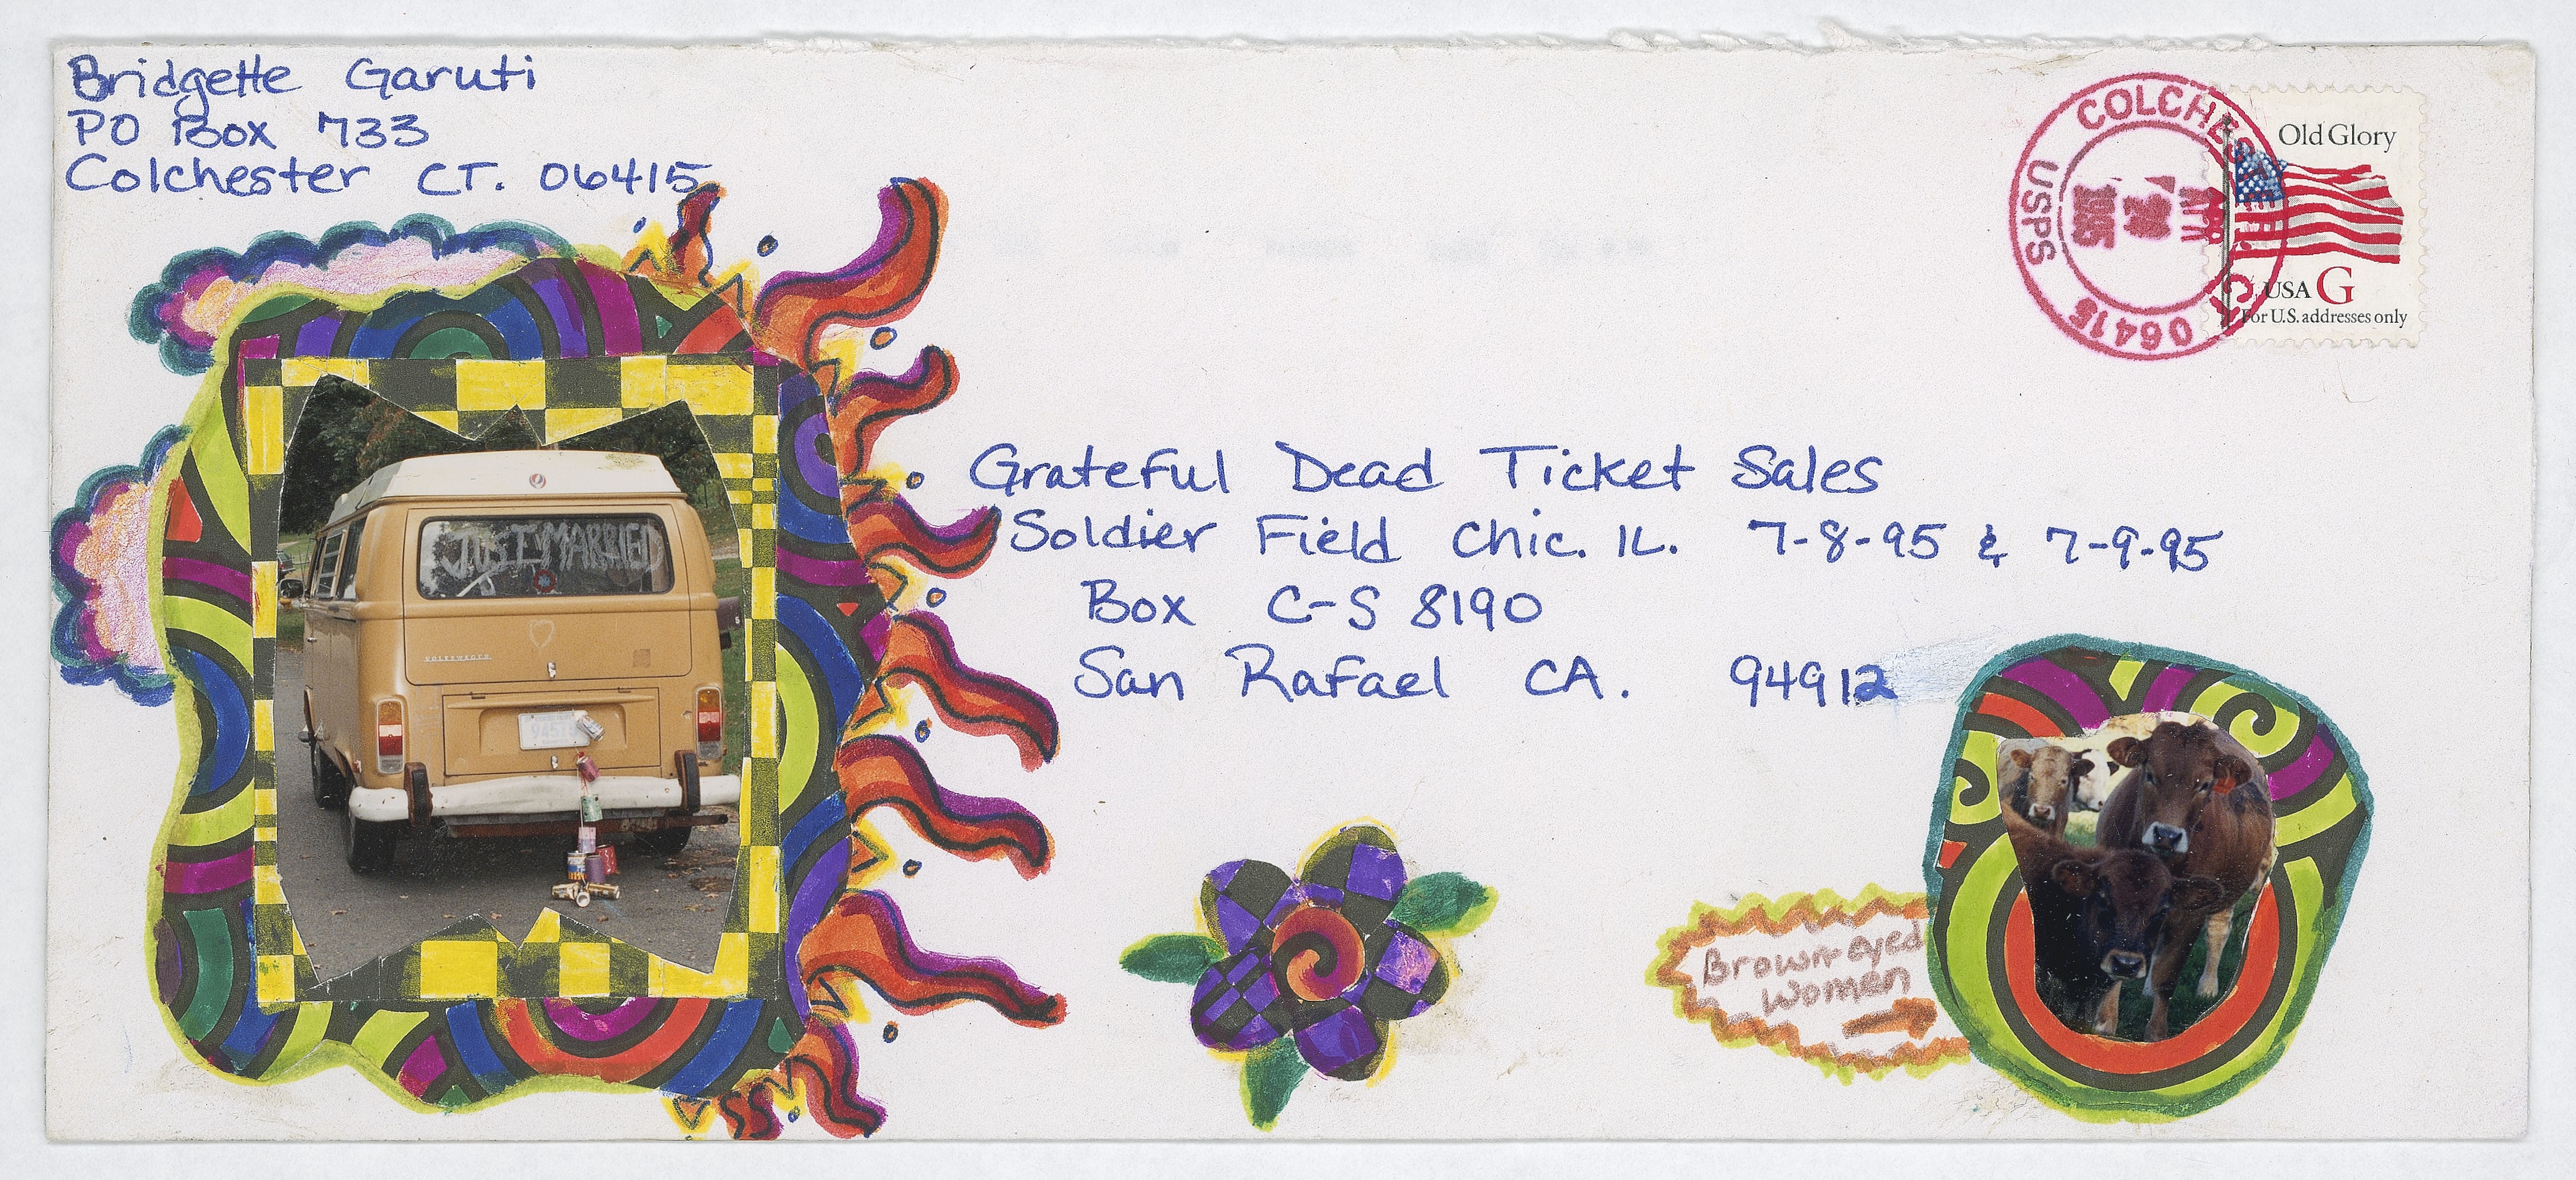 Bridgette Garuti
PO Box 733
Colchester CT. 06415
COLCHESTER, CT
USPS
APR
1995
06415
Old Glory
USA G
For U.S. addresses only
Grateful Dead Ticket Sales
Soldier Field Chic. IL. 7-8-95 & 7-9-95
Box C-S 8190
San Rafael CA. 94912
JUST MARRIED
VOLKSWAGEN
Brown-eyed
Women